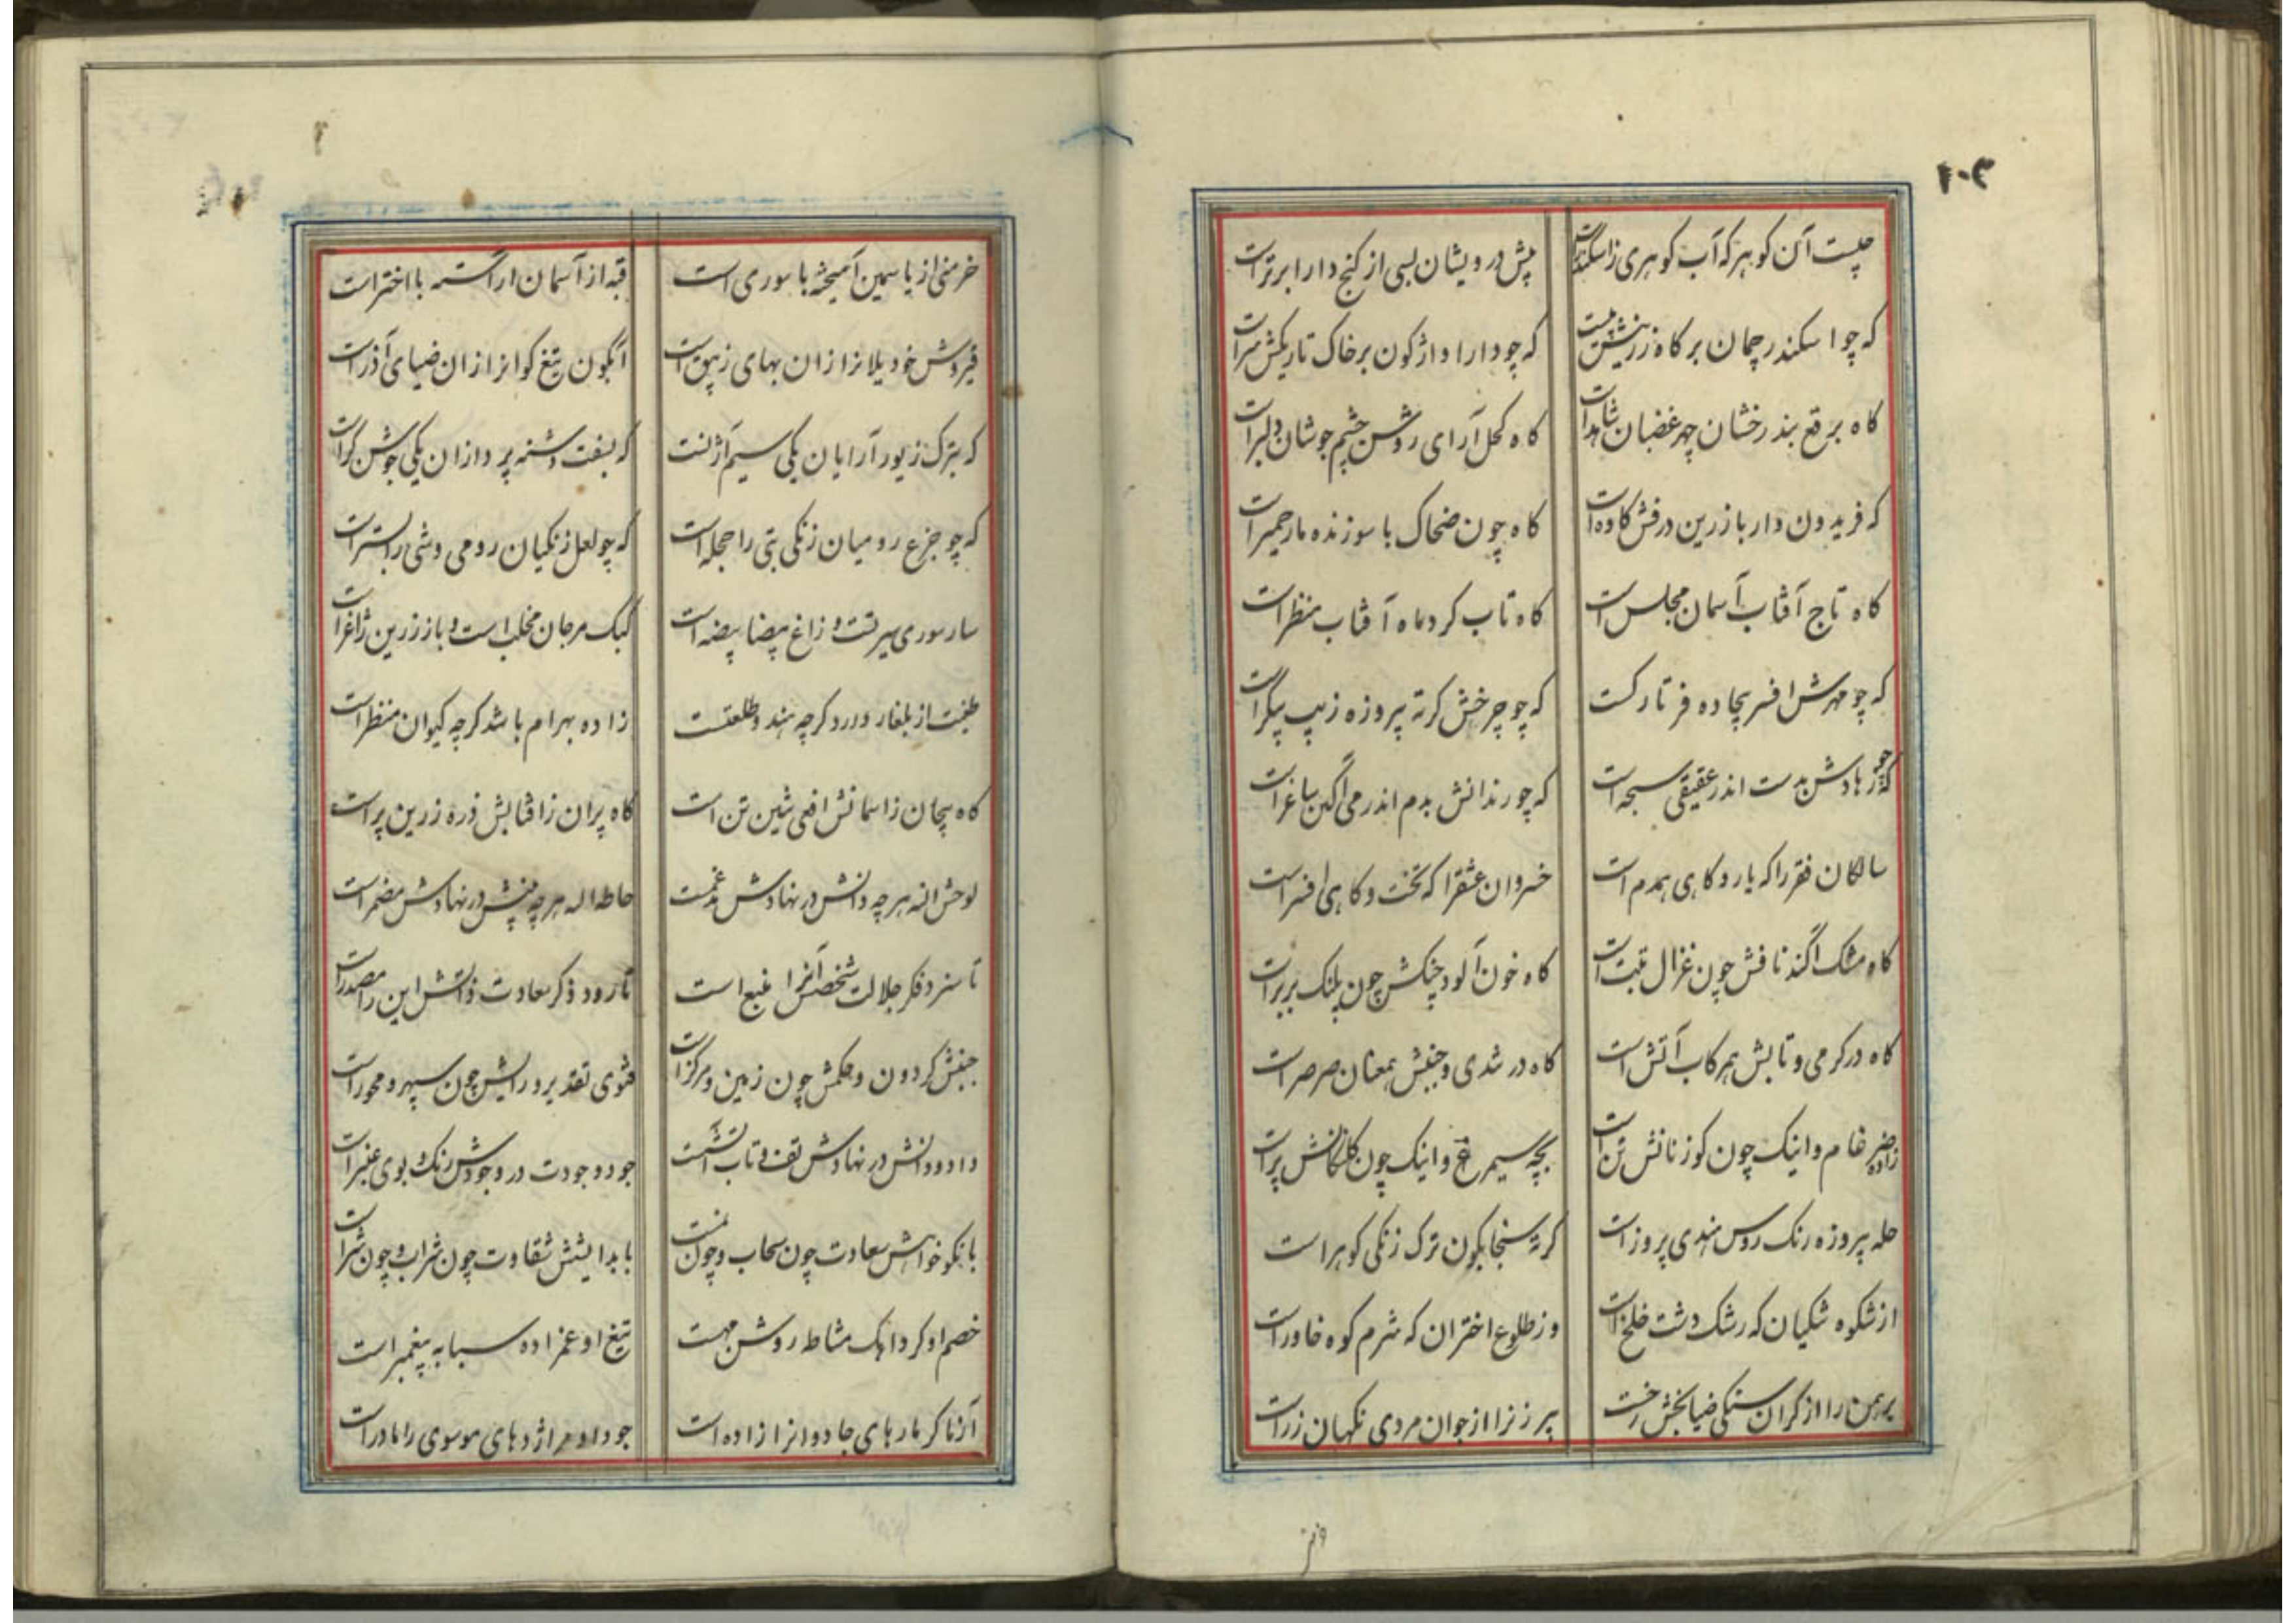 ۱۰۳
چیست آن کوهر که آب کوهری زاسکندر است
پیش درویشان بسی از کنج دارا برتر است
که چو اسکندر چمان بر کاه زرینش
که چو دارا واژکون بر خاک تاریکش سر است
کاه برقع بند رخشان چهر غضبان شاهد است
کاه کحل آرای روشن چشم جوشان دلبر است
که فریدون وار با زرین درفش کاوه است
کاه چون ضحاک با سوزنده مار حمیر است
کاه تاج آفتاب آسمان مجلس است
کاه تاب کرد ماه آفتاب منظر است
که چو مهرش افسر بیجاده فر تارکست
که چو چرخش کرته پیروزه زیب پیکر است
که چو زهادش بدست اندر عقیقی سبحه است
که چو رندانش بدم اندر می آکین ساغر است
سالکان فقر را که یار و کاهی همدم است
خسروان عشقرا که تخت و کاهی افسر است
کاه مشک آکند نافش چون غزال تبت است
کاه خون آلود چنکش چون پلنک بربر است
کاه در کرمی و تابش همرکاب آتش است
کاه در تندی و جنبش همعنان صرصر است
زاده ضرغام و اینک چون کوزنانش تن است
بچه سیمرغ و اینک چون کلنکانش پر است
حله پیروزه رنک روس هندی پروز است
کرته سنجابکون ترک زنکی کوهر است
از شکوه شکیان که رشک دشت خلخ است
وز طلوع اختران که شرم کوه خاور است
برهمن را از کران سنکی ضیا بخش رخست
پیر زنرا از جوان مردی نکهبان زر است
خرمنی از یاسمین آمیخته با سوری است
قبه از آسمان اراسته با اختر است
قیروش خود یلانرا زان بهای زیبق است
آبکون تیغ کوانرا زان ضیای آذر است
که بترک زیور آرایان یکی سیم آژنست
که بسفت دشنه پردازان یکی جوشن کر است
که چو جزع رومیان زنکی بتی را حجله است
که چو لعل زنکیان رومی وشی را بستر است
سار سوری سیرتست و زاغ بیضا بیضه است
کبک مرجان مخلب است و باز زرین ژاغر است
طینت از بلغار دارد کرچه هند و طلعتست
زاده بهرام باشد کرچه کیوان منظر است
کاه پیچان زاسمانش افعی مشین تن است
کاه پران زافتابش ذره زرین پر است
لوحش اله هر چه دانش در نهادش مدغمست
حاطه اله هر چه بینش در نهادش مضمر است
تا سزد فکر جلالت شخص آنرا منبع است
تا رود ذکر سعادت ذاتش این را مصدر است
جنبش کردون و حکمش چون زمین و مرکز است
فتوی تقدیر و رایش چون سپهر و محور است
داد و دانش در نهادش تف و تاب آتشست
جود وجودت در وجودش رنک و بوی عنبر است
با نکو خواهش سعادت چون سحاب و چون
با بد اندیشش شقاوت چون شراب و چون شر است
خصم او کر دانک مشاط روشن مهست
تیغ او عمزاده سبابه پیغمبر است
آنرنا کر مارهای جادوانرا زاده است
جود او مر اژدهای موسوی را مادر است